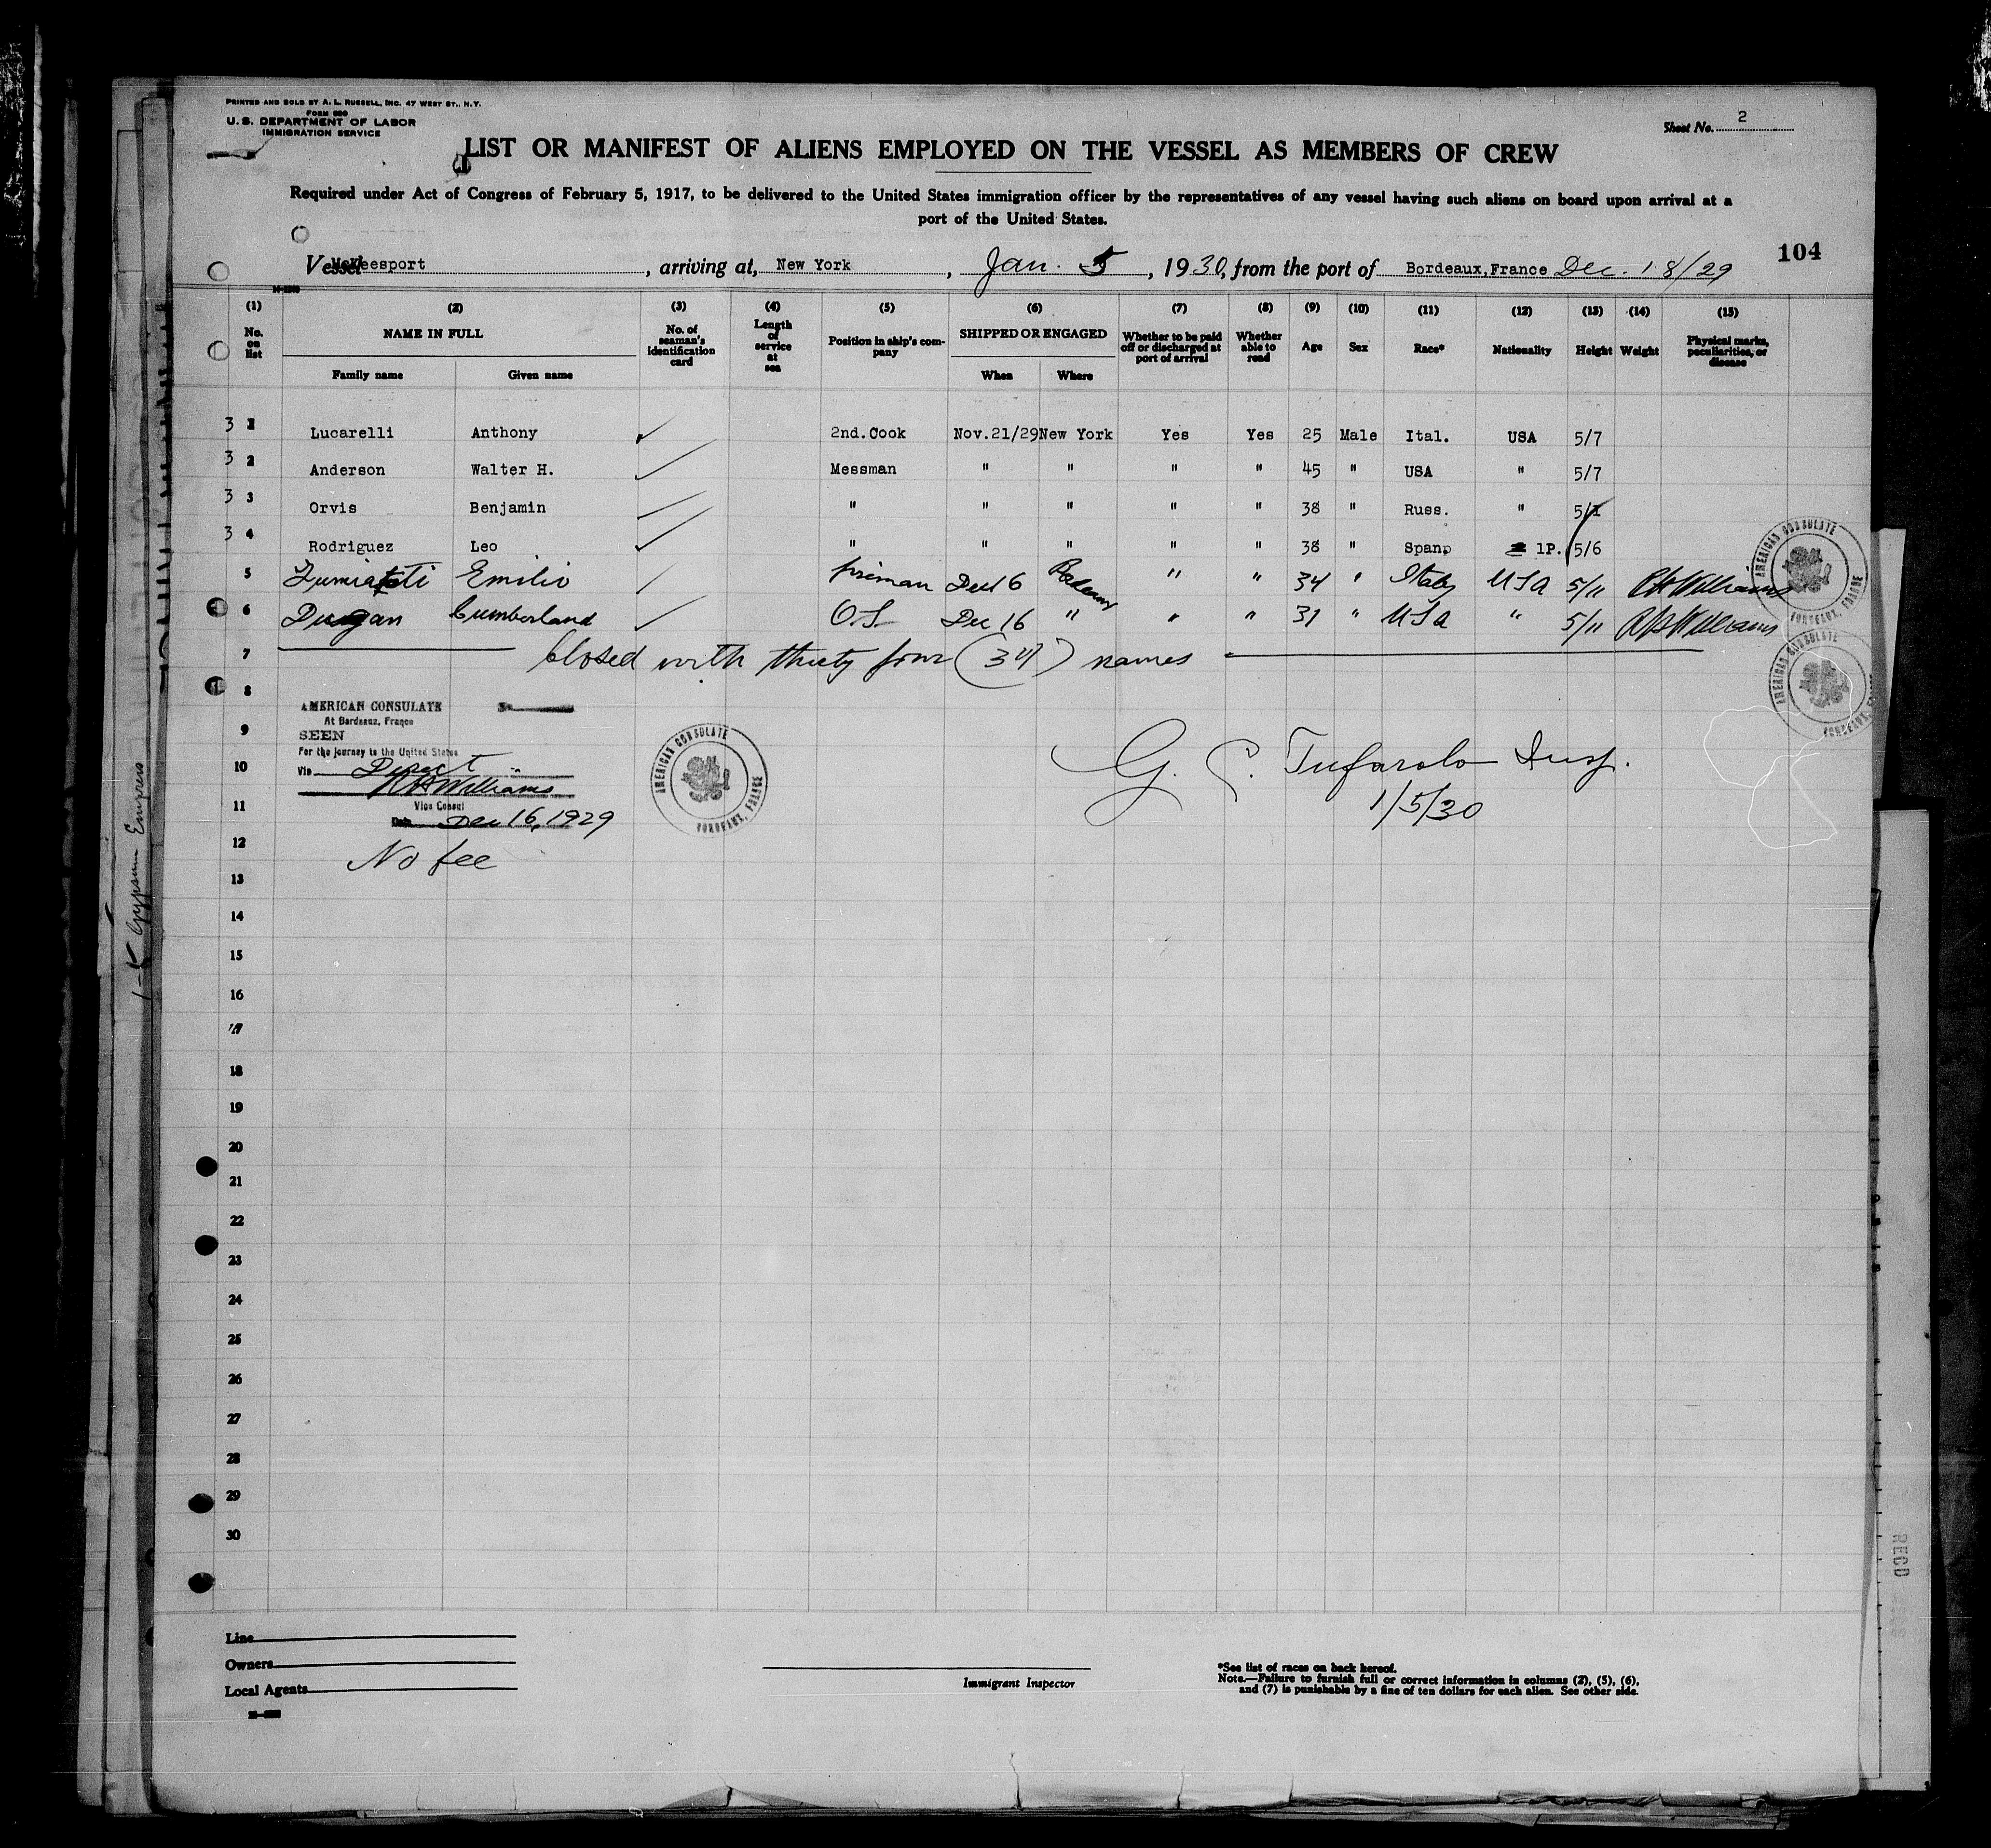 PRINTED AND SOLD BY A. L. RUSSELL, INC. 47 WEST ST., N.Y.
FORM 680
U. S. DEPARTMENT OF LABOR
IMMIGRATION SERVICE
Sheet No. 2
LIST OR MANIFEST OF ALIENS EMPLOYED ON THE VESSEL AS MEMBERS OF CREW
Required under Act of Congress of February 5, 1917, to be delivered to the United States immigration officer by the representatives of any vessel having such aliens on board upon arrival at a
port of the United States.
104
Vessel McKeesport, arriving at, New York, Jan. 5, 1930, from the port of Bordeaux, France Dec. 18/29
(1) (2) (3) (4) (5) (6) (7) (8) (9) (10) (11) (12) (13) (14) (15)
No. on list NAME IN FULL No. of seaman's identification card Length of service at sea Position in ship's company SHIPPED OR ENGAGED Whether to be paid off or discharged at port of arrival Whether able to read Age Sex Race* Nationality Height Weight Physical marks, peculiarities, or disease
Family name Given name When Where
3 1 Lucarelli Anthony 2nd.Cook Nov.21/29 New York Yes Yes 25 Male Ital. USA 5/7
3 2 Anderson Walter H. Messman " " " " 45 " USA " 5/7
3 3 Orvis Benjamin " " " " " 38 " Russ. " 5/
3 4 Rodriguez Leo " " " " " 38 " Span. 1P. 5/6
5 Emilio fireman Dec 16 " " 34 " Italy USA 5/11 Williams
6 Dugan Cumberland O.S. Dec 16 " " " 31 " USA " 5/11 Williams
7 Closed with thirty four (34) names
8
AMERICAN CONSULATE
At Bordeaux, France
9
SEEN
For the journey to the United States
10 Via Direct
Williams
11 Vice Consul
Date Dec 16, 1929
12 No fee
AMERICAN CONSULATE
BORDEAUX, FRANCE
AMERICAN CONSULATE
BORDEAUX, FRANCE
AMERICAN CONSULATE
BORDEAUX, FRANCE
G. C. Tufarolo Insp.
1/5/30
13
14
15
16
17
18
19
20
21
22
23
24
25
26
27
28
29
30
1-5 Gypsum Empress
RECD
Line
Owners
Local Agents
Immigrant Inspector
*See list of races on back hereof.
Note.—Failure to furnish full or correct information in columns (2), (5), (6),
and (7) is punishable by a fine of ten dollars for each alien. See other side.